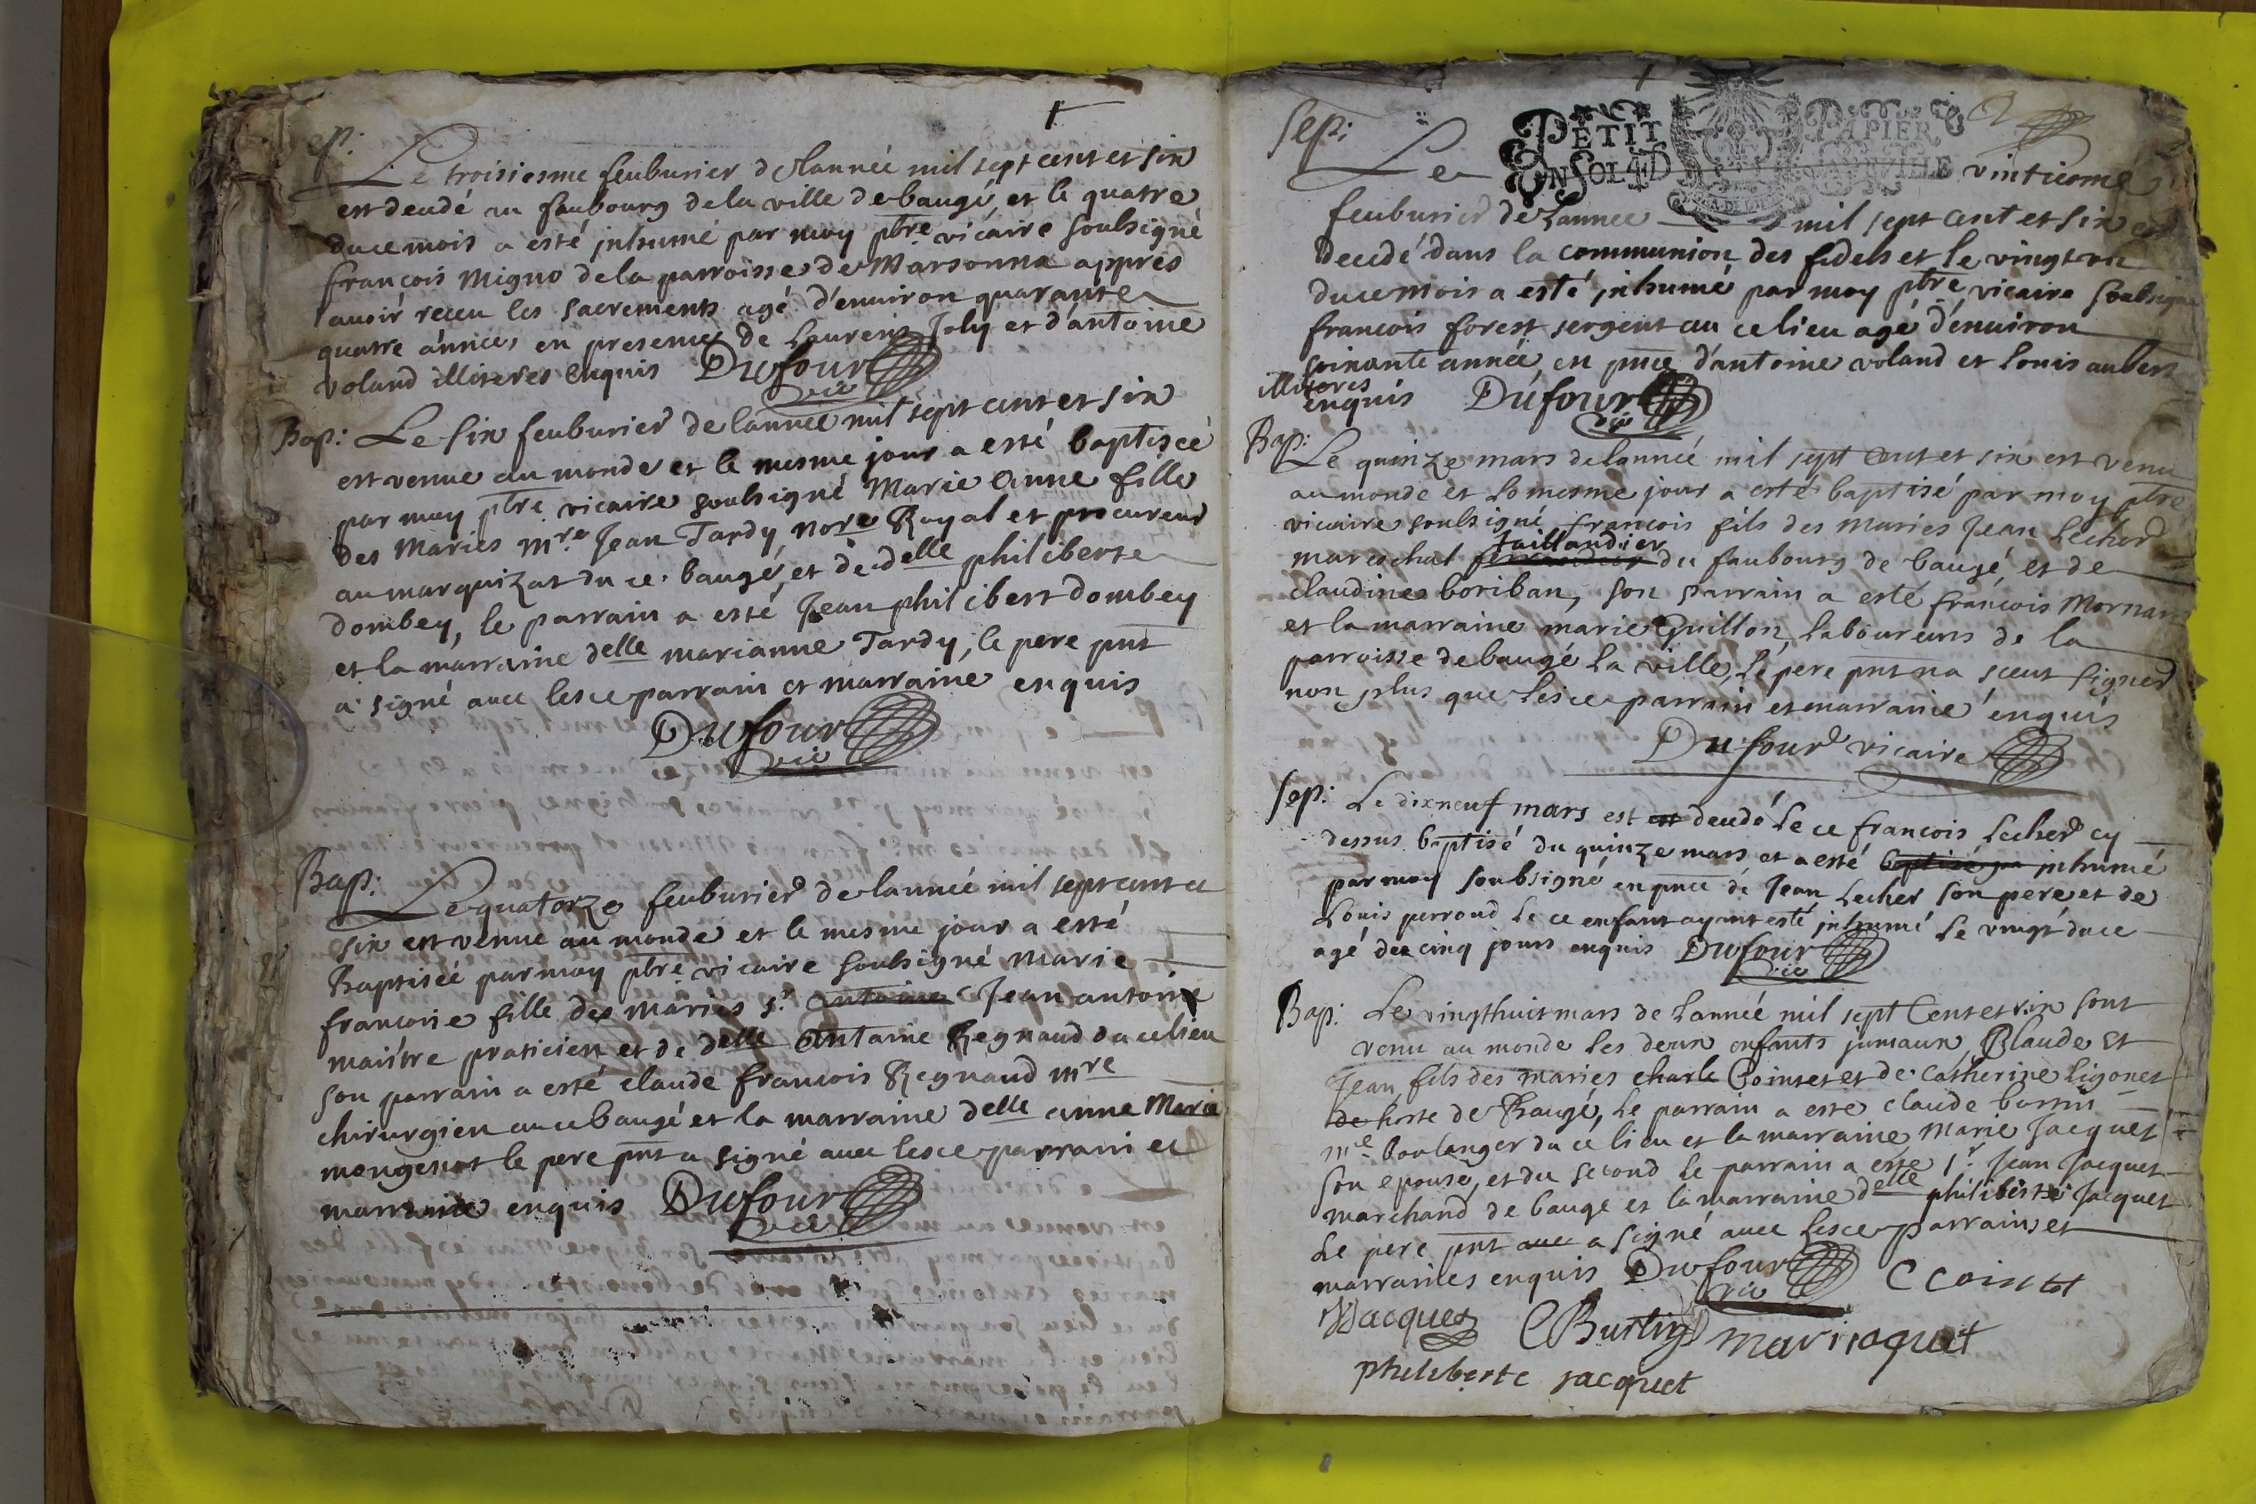 ep:
Le troisiesme feuburier de lannée mil sept cent et six
est decedé au faubourg de la ville de baugé, et le quatre
du ce mois a esté inhumé par moy pbre vicaire soubsigné
françois Migno de la parroisse de Marsonna appres
auoir receu les sacrements agé d'enuiron quarante
quatre années, en presence de Laurent Joly et d'antoine
voland illiteres enquis Dufour
vic
Bap: Le six feuburier de lannée mil sept cent et six
est venue au monde et le mesme jour a esté baptiscé
par moy pbre vicaire soubsigné Marie Anne fille
des Maries mre Jean Tardy nore Royal et procureur
au marquizat du ce baugé, et de delle philiberte
dombey, le parrain a esté Jean philibert dombey
et la marraine delle marianne Tardy, le pere pnt
a signé auec lesce parrain et marraine enquis
Dufour
vic
Bap:
Le quatorze feuburier de lannée mil sept cent et
six est venue au monde et le mesme jour a esté
Baptiséé par moy pbre vicaire soubsigné Marie
francoise fille des Maries sr antoine Jean antoine
maiître praticien et de delle Antoine Regnaud du ce lieu
son parrain a esté claude francois Regnaud mre
chirurgien au ce baugé et la marraine delle anne Marie
mongenot le pere pnt a signé auec lesce parrain et
marraine enquis Dufour
vic
Sep:
PETIT PAPIER
EN SOL 4D
Le vintiesme
feuburier de Lannee mil sept cent et six est
decedé dans la communion des fidels et le vingt un
du ce mois a esté inhumé par moy pbre vicaire soubsigné
francois forest sergent au ce lieu agé d'enuiron
soixante année, en pnce d'antoine voland et Louis aubert
illiteres
enquis Dufour
vic
Bap:
Le quinze mars de lannée mil sept cent et six est venu
au monde et le mesme jour a esté baptisé par moy pbre
vicaire soubsigné francois fils des Maries Jean Lecher
taillandier
mareschal du faubourg de baugé et de
claudine boriban, son parrain a esté francois Mornan
et la marraine marie Guillon, laboureurs de la
parroisse de baugé la ville, le pere pnt na sceut signer
non plus que lesce parrain et marraine enquis
Dufour vicaire
Sep: Le dixneuf mars est est decedé le ce francois Lecher cy
dessus baptisé du quinze mars et a esté baptisé par inhumé
par moy soubsigné en pnce de Jean Lecher son pere et de
Louis perroud le ce enfant ayant esté inhumé le vingt du ce
agé de cinq jours enquis Dufour
vic
Bap: Le vingthuit mars de Lannéé mil sept Cent et six sont
venu au monde les deux enfants jumaux, Claude Et
Jean fils des maries charle Cointet et de Catherine Ligonet
de hoste de Baugé, le parrain a esté claude
me boulanger du ce lieu et la marraine Marie Jacquet
son epouse, et du second le parrain a este sr Jean Jacquet
marchand de bauge et la marraine delle philiberte Jacquet
Le pere pnt auec a signé auec lesce parrains et
marraines enquis Dufour C Cointet
vic
Jacquet mari iaquet
philiberte jacquet